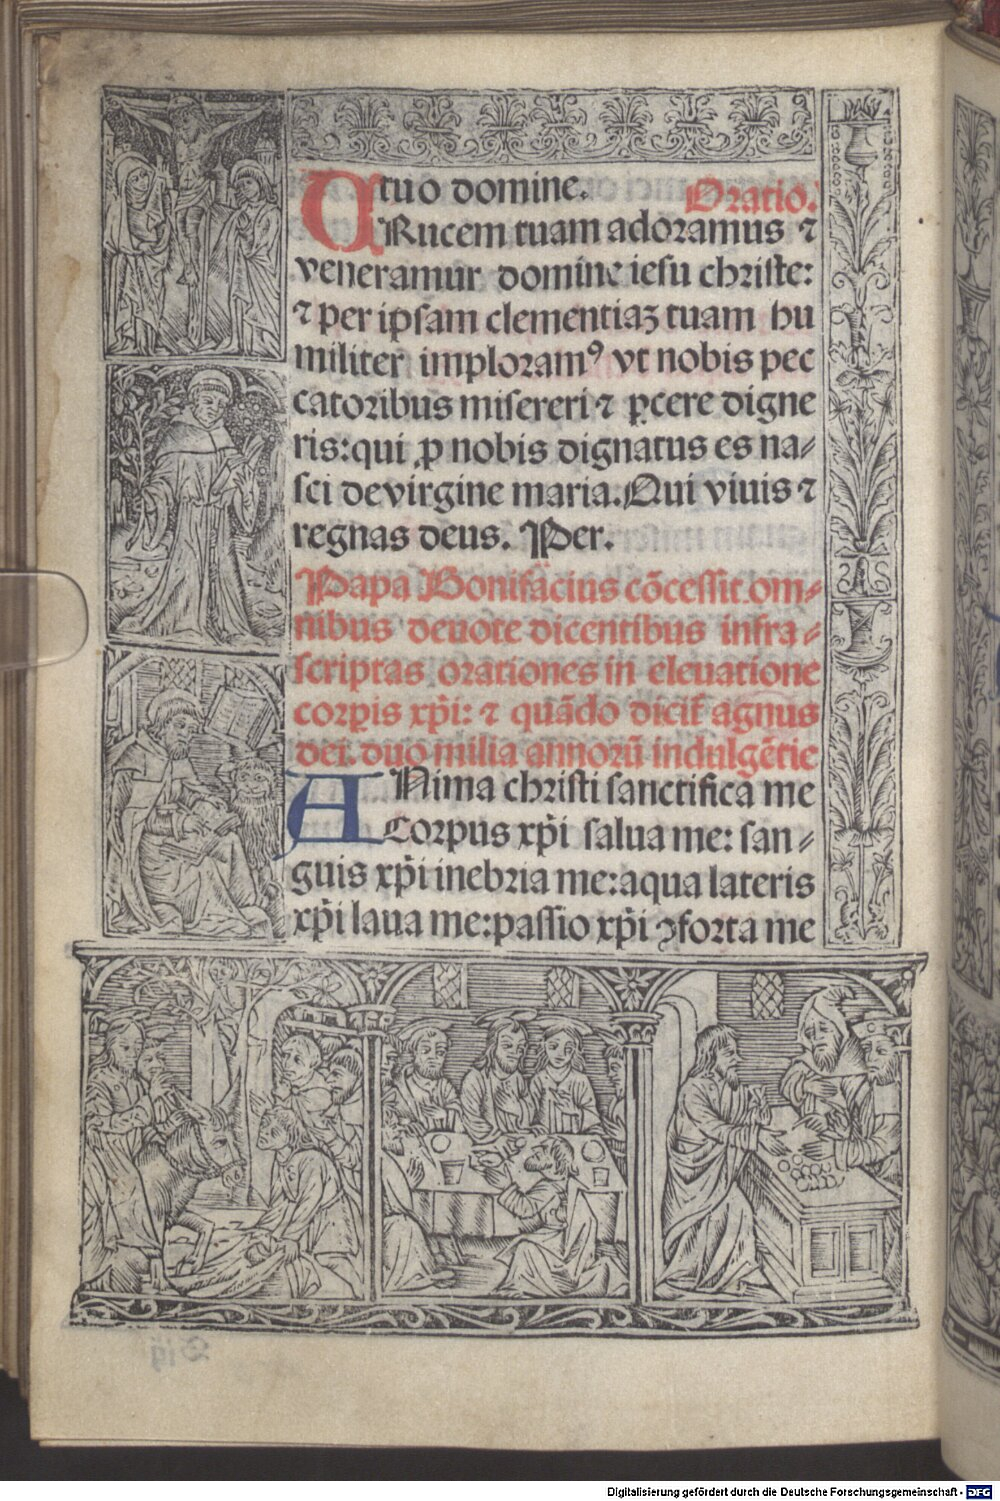 tuo domine. Oratio.
CRucem tuam adoramus ⁊
veneramur domine iesu christe:
⁊ per ipsam clementiaꝫ tuam hu
militer imploramꝰ vt nobis pec
catoribus misereri ⁊ ꝑcere digne
ris: qui ꝓ nobis dignatus es na⸗
sci de virgine maria. Qui viuis ⁊
regnas deus. Per.
Papa Bonifacius cōcessit om⸗
nibus deuote dicentibus infra⸗
scriptas orationes in eleuatione
corꝑis xp̄i: ⁊ quādo dicit̄ agnus
dei. duo milia annorū indulgētie
ANima christi sanctifica me
Corpus xp̄i salua me: san⸗
guis xp̄i inebria me: aqua lateris
xp̄i laua me: passio xp̄i ꝯforta me
Digitalisierung gefördert durch die Deutsche Forschungsgemeinschaft - DFG